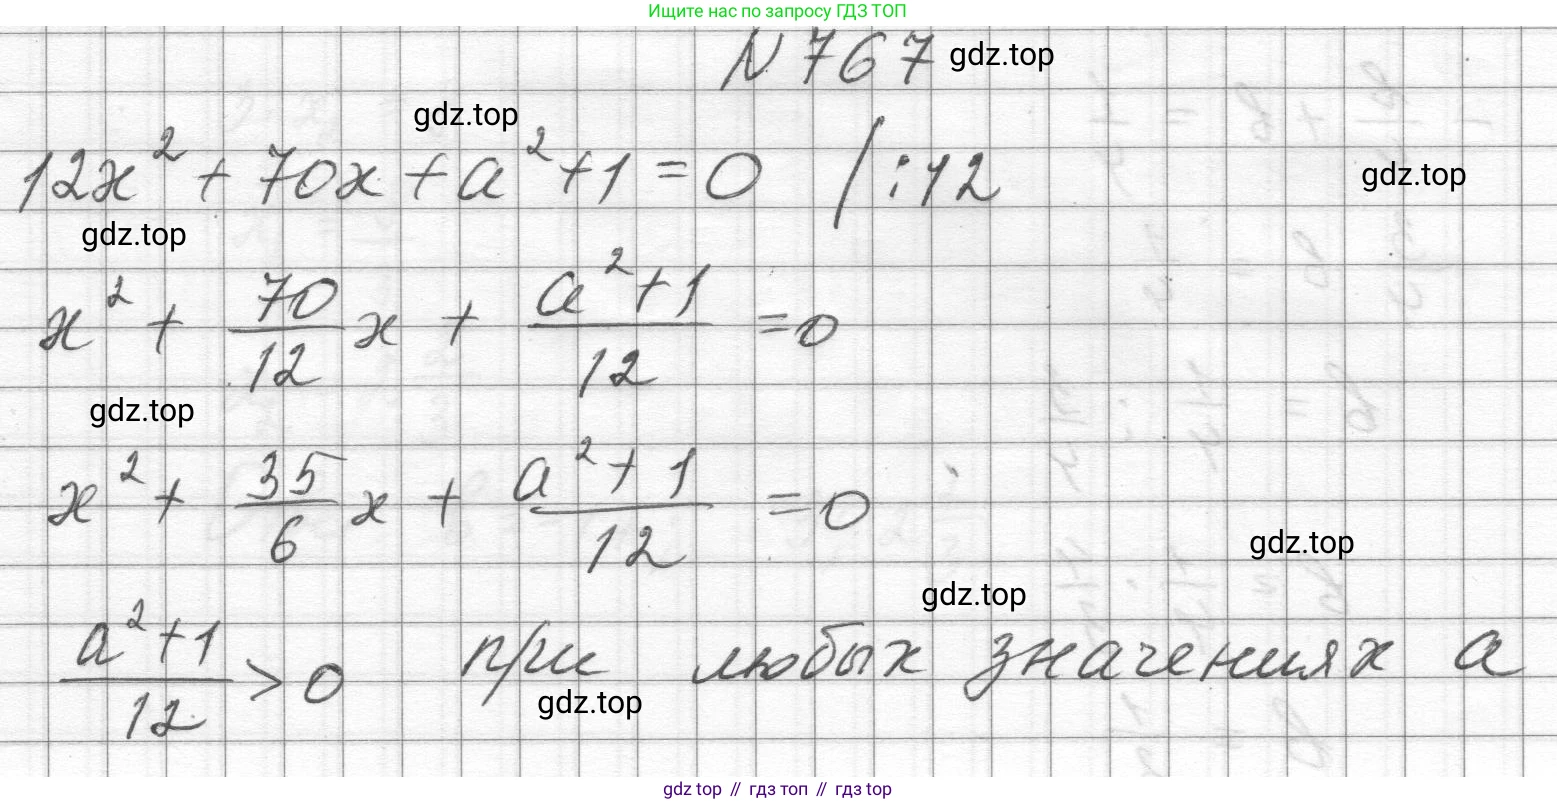 Ищите нас по запросу ГДЗ ТОП
N 767 gdz.top
gdz.top
12x² + 70x + a² + 1 = 0 / :12
gdz.top
gdz.top
x² + 70/12 x + (a² + 1)/12 = 0
gdz.top
x² + 35/6 x + (a² + 1)/12 = 0
gdz.top
gdz.top
(a² + 1)/12 > 0 при любых значениях a
gdz.top
gdz top // гдз топ // гдз top